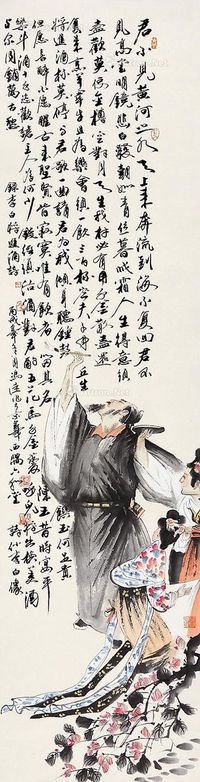 君不見黃河之水天上來奔流到海不復回君不
見高堂明鏡悲白髮朝如青絲暮成雪人生得意須
盡歡莫使金樽空對月天生我材必有用千金散盡還
復來烹羊宰牛且為樂會須一飲三百杯岑夫子丹丘生
將進酒杯莫停與君歌一曲請君為我傾耳聽鐘鼓
饌玉何足貴
但願長醉不願醒古來聖賢皆寂寞惟有飲者留其名
陳王昔時宴平
樂斗酒十千恣歡謔主人為何言少錢徑須沽取對君酌五花馬千金裘
呼兒將出換美酒
與爾同銷萬古愁
錄李白將進酒詩